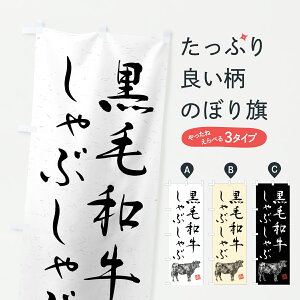 黒毛和牛
しゃぶしゃぶ
たっぷり
良い柄
のぼり旗
やったね
えらべる
3タイプ
A
B
C
黒毛和牛
しゃぶしゃぶ
黒毛和牛
しゃぶしゃぶ
黒毛和牛
しゃぶしゃぶ